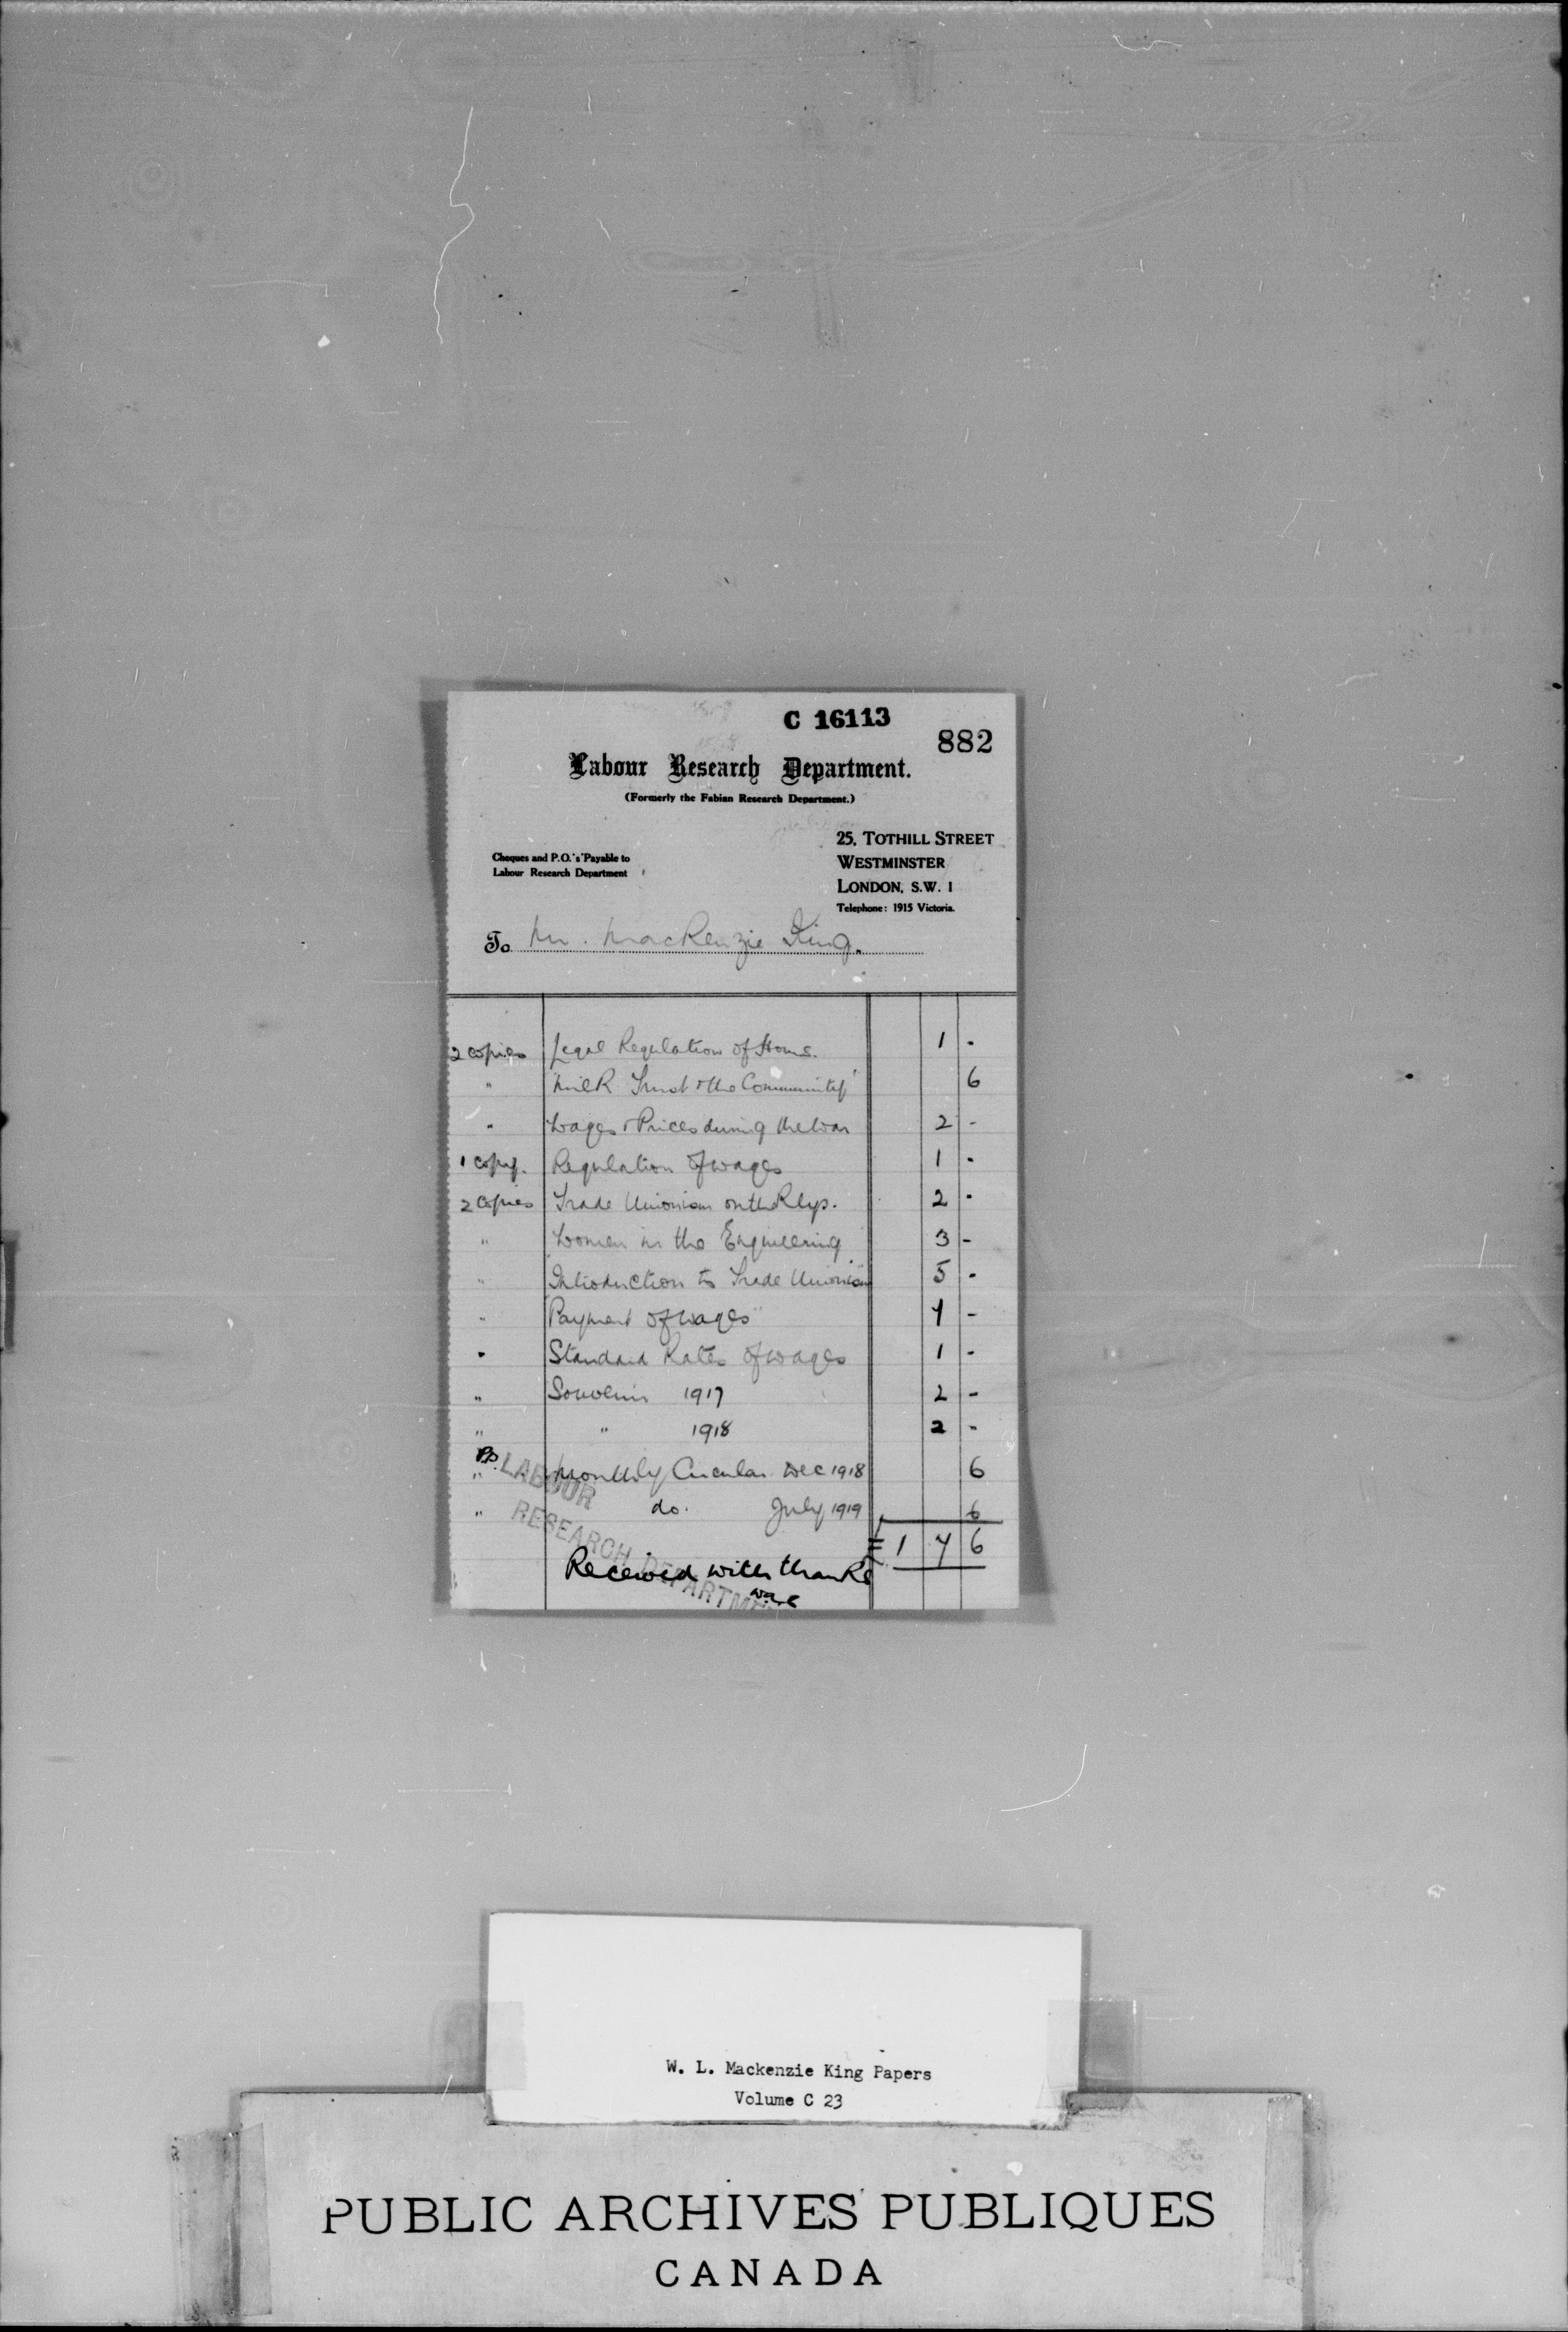 C 16113
882
Labour Research Department.
(Formerly the Fabian Research Department.)
25, TOTHILL STREET
Cheques and P.O.'s Payable to
WESTMINSTER
Labour Research Department
LONDON, S.W. 1
Telephone: 1915 Victoria.
To Mr. MacKenzie King.
2 copies Legal Regulation of Hours. 1 -
" "Milk Trust & the Community" 6
" Wages & Prices during the War 2 -
1 copy. Regulation of Wages 1 -
2 copies Trade Unionism on the Rlys. 2 -
" Women in the Engineering 3 -
" Introduction to Trade Unionism 5 -
" "Payment of Wages" 7 -
" Standard Rates of Wages 1 -
" Souvenir 1917 2 -
" " 1918 2 -
" Monthly Circular Dec 1918 6
" do. July 1919 6
£ 1 7 6
pp. LABOUR
RESEARCH DEPARTMENT
Received with thanks
W. L. Mackenzie King Papers
Volume C 23
PUBLIC ARCHIVES PUBLIQUES
CANADA